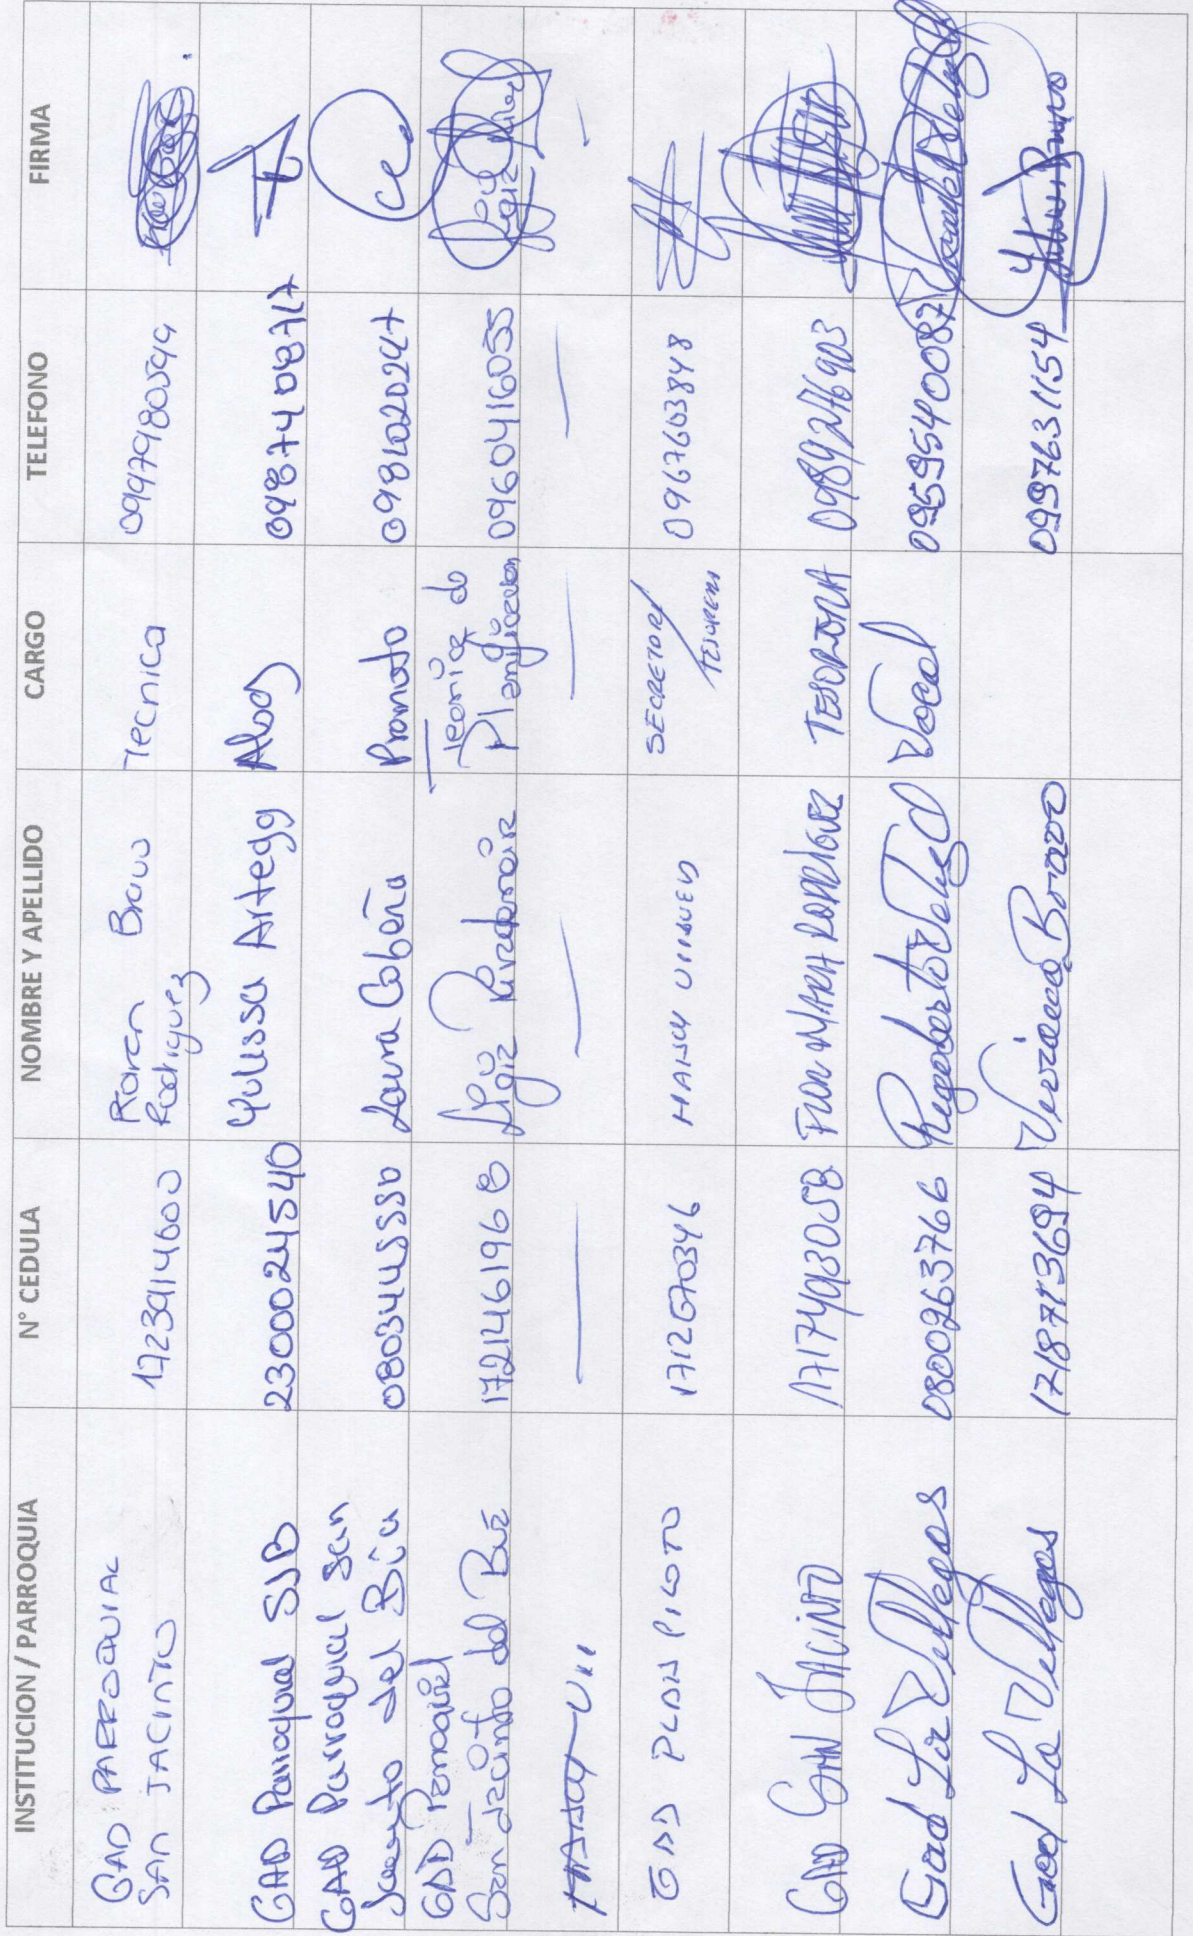 INSTITUCION / PARROQUIA N° CEDULA NOMBRE Y APELLIDO CARGO TELEFONO FIRMA
GAD PARROQUIAL
SAN JACINTO
1723914600
Karen Bravo
Rodriguez
Tecnica
0997980594
GAD Parroquial SJB
2300024540
Yulissa Artega
Abog
GAD Parroquial San
Jacinto del Búa
Laura Cobeña
Promoto
GAD Parroquial
San Jacinto del Bua
1721461968
Ligia
Tecnica de
Planificacion
0960416055
GAD PLAN PILOTO
1712670346
SECRETORA/
TESORERA
0967603848
GAD SAN JACINTO
FLOR MARIA RODRIGUEZ
TESORERA
0989276903
Gad La Villegas
0800963766
Rigoberto Velez
Vocal
0959540087
Gad La Villegas
1718713694
Viviana Bravo
0997631154